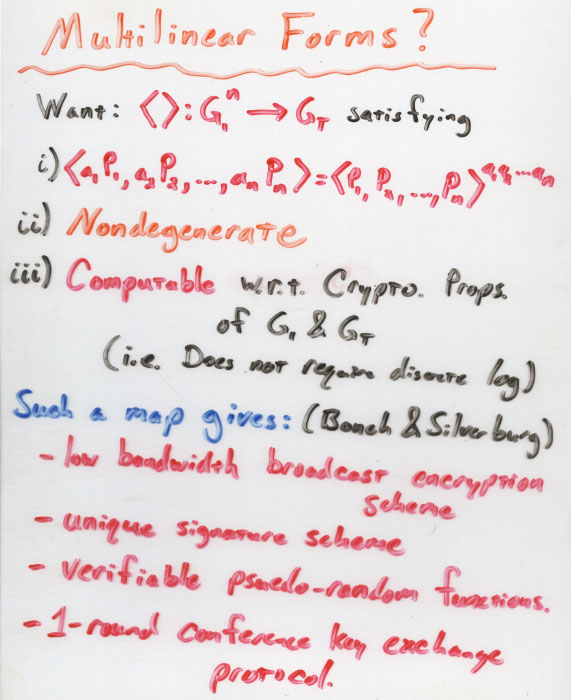 Multilinear Forms?
Want: ⟨⟩: G₁ⁿ → G_T satisfying
i) ⟨a₁P₁, a₂P₂, ..., aₙPₙ⟩ = ⟨P₁, P₂, ..., Pₙ⟩^a₁a₂...aₙ
ii) Nondegenerate
iii) Computable w.r.t. Crypto. Props.
of G₁ & G_T
(i.e. Does not require discrete log)
Such a map gives: (Boneh & Silverburg)
- low bandwidth broadcast encryption
scheme
- unique signature scheme
- verifiable psuedo-random functions.
- 1-round conference key exchange
protocol.